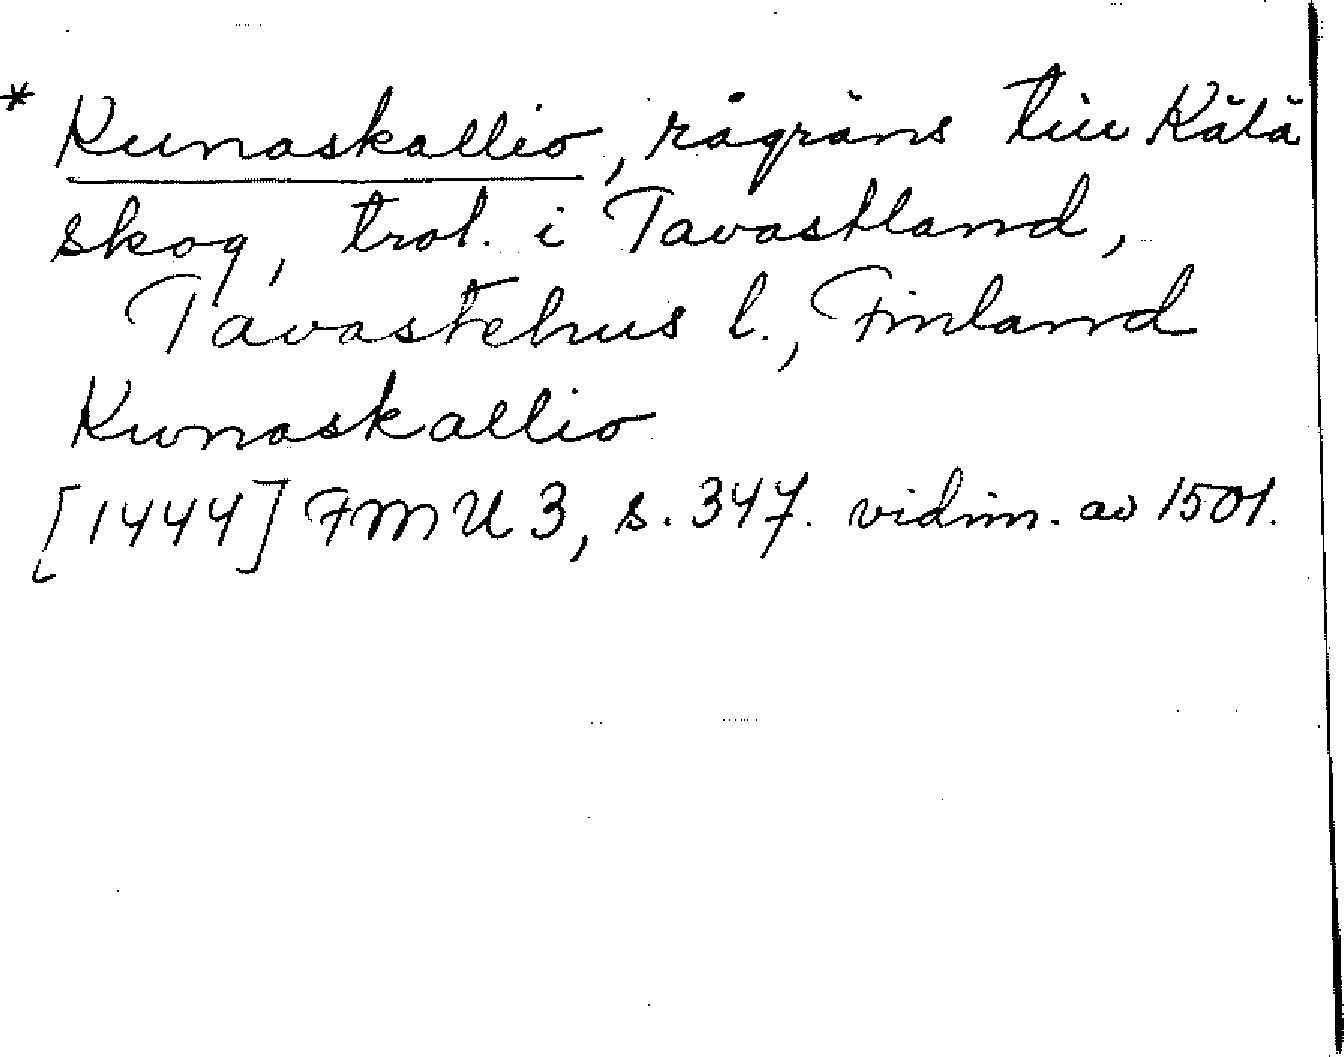 * Kunaskallio, rågräns till Kälä
skog, trol. i Tavastland,
Tavastehus l., Finland
Kunaskallio
[1444] FMU 3, s. 347. vidim. av 1501.